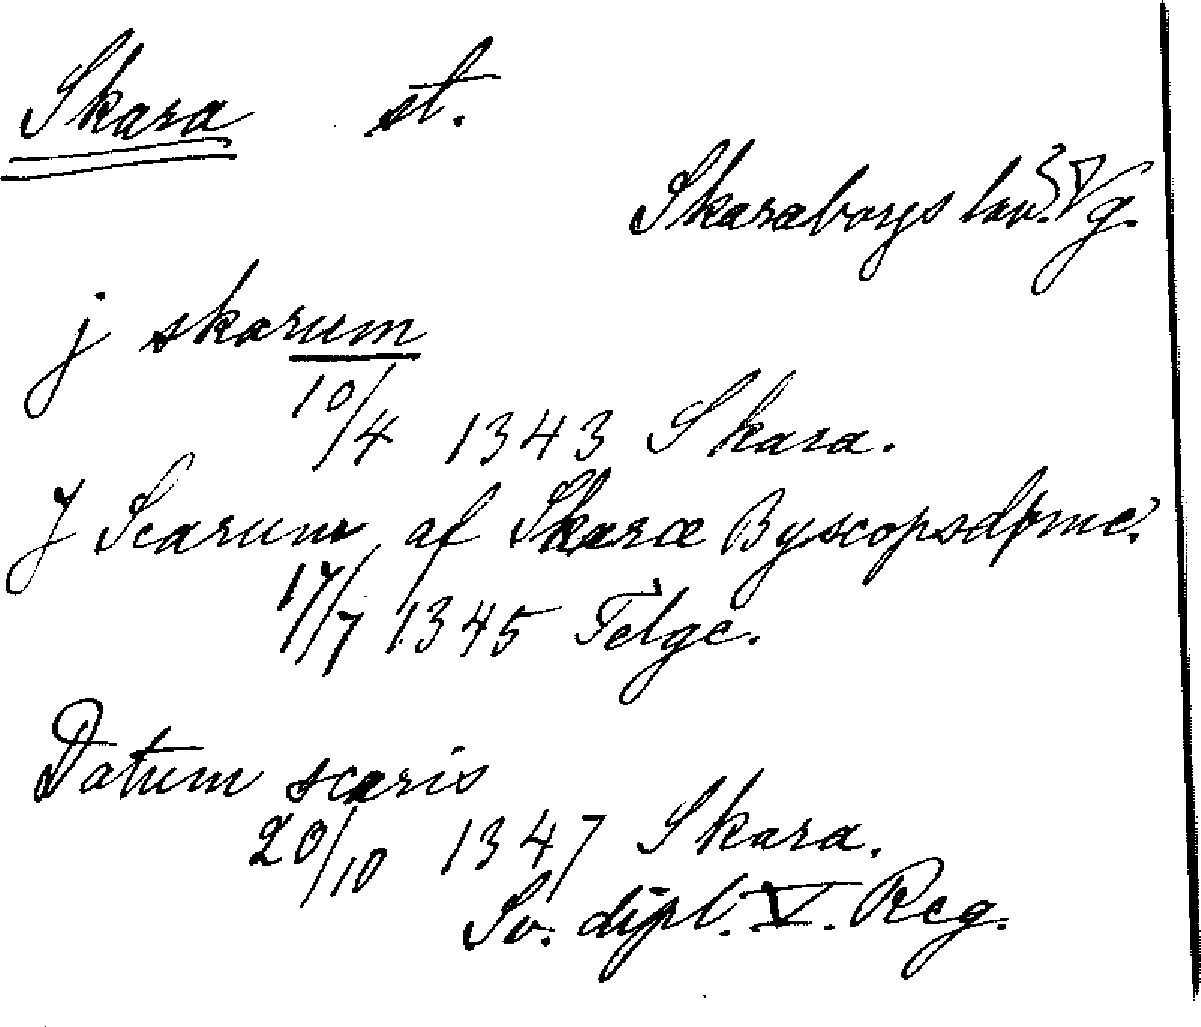 Skara st.
Skaraborgs län. Vg.
j skarum
10/4 1343 Skara.
J Scarum, af Skaræ Byscopsdøme.
17/7 1345 Telge.
Datum scaris
20/10 1347 Skara.
Sv. dipl. V. Reg.